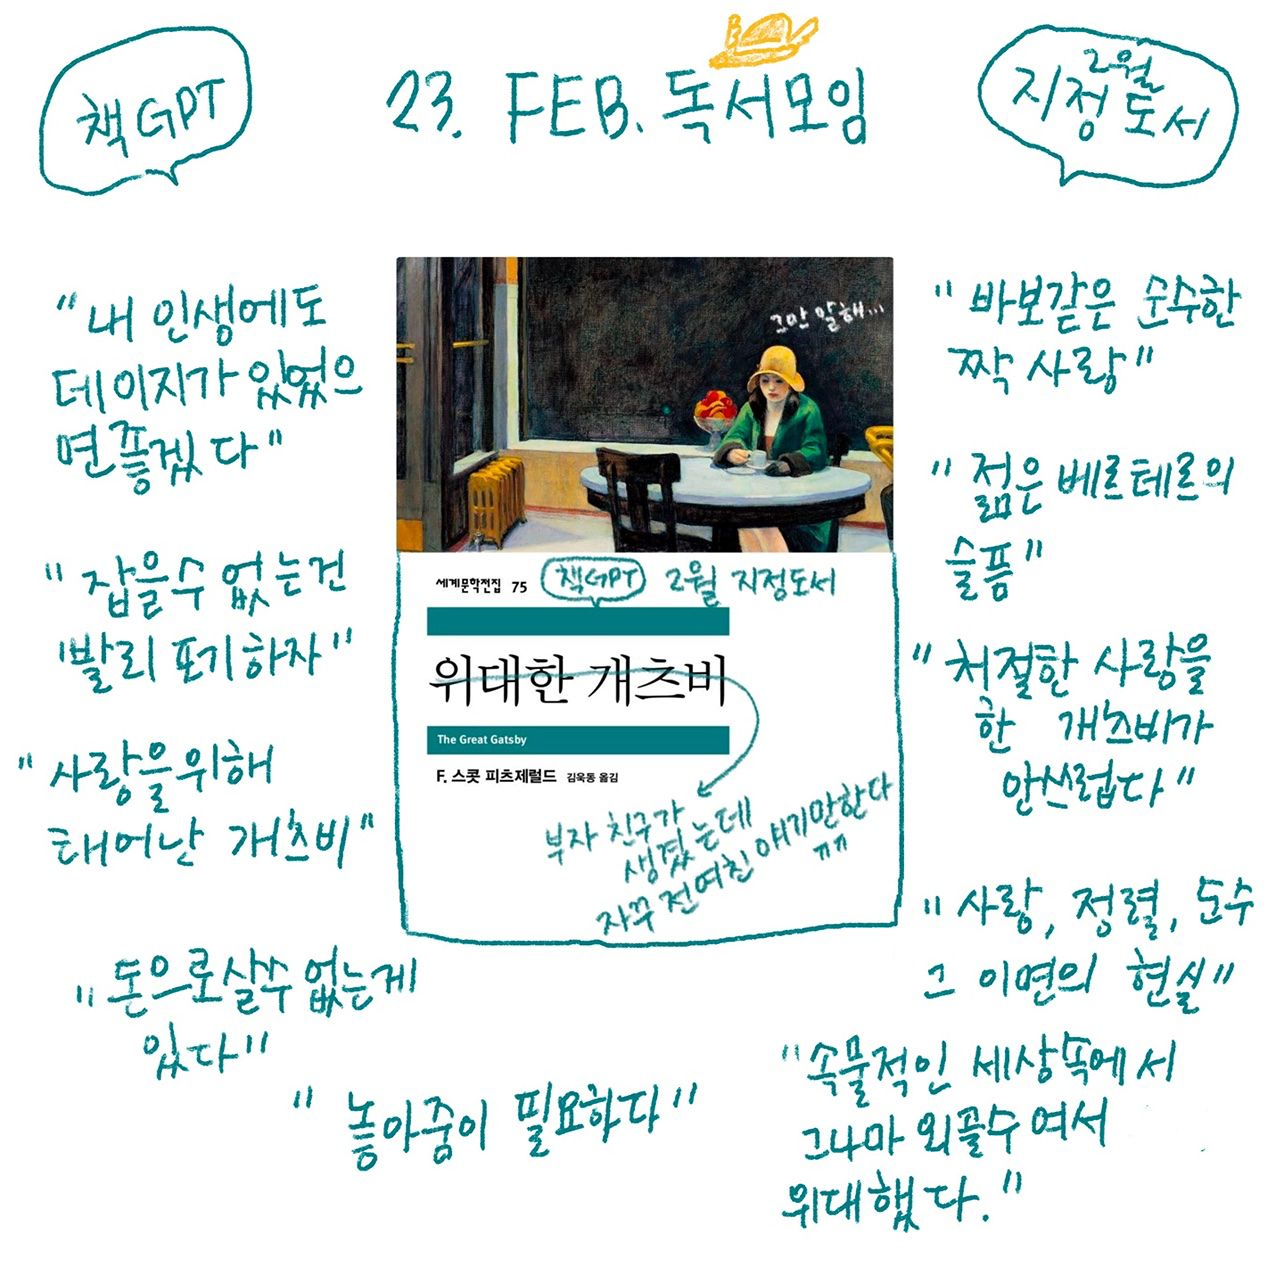 책GPT
23. FEB. 독서모임
2월
지정도서
"내 인생에도
데이지가 있었으
면 좋겠다"
"잡을수 없는건
빨리 포기하자"
"사랑을위해
태어난 개츠비"
"돈으로살수 없는게
있다"
"놓아줌이 필요하다"
그만 말해...
세계문학전집 75
책GPT 2월 지정도서
위대한 개츠비
The Great Gatsby
F. 스콧 피츠제럴드 김욱동 옮김
부자 친구가
생겼는데
자꾸 전여친 얘기만한다
ㅠㅠ
"바보같은 순수한
짝사랑"
"젊은 베르테르의
슬픔"
"처절한 사랑을
한 개츠비가
안쓰럽다"
"사랑, 정렬, 순수
그 이면의 현실"
"속물적인 세상속에서
그나마 외골수여서
위대했다."